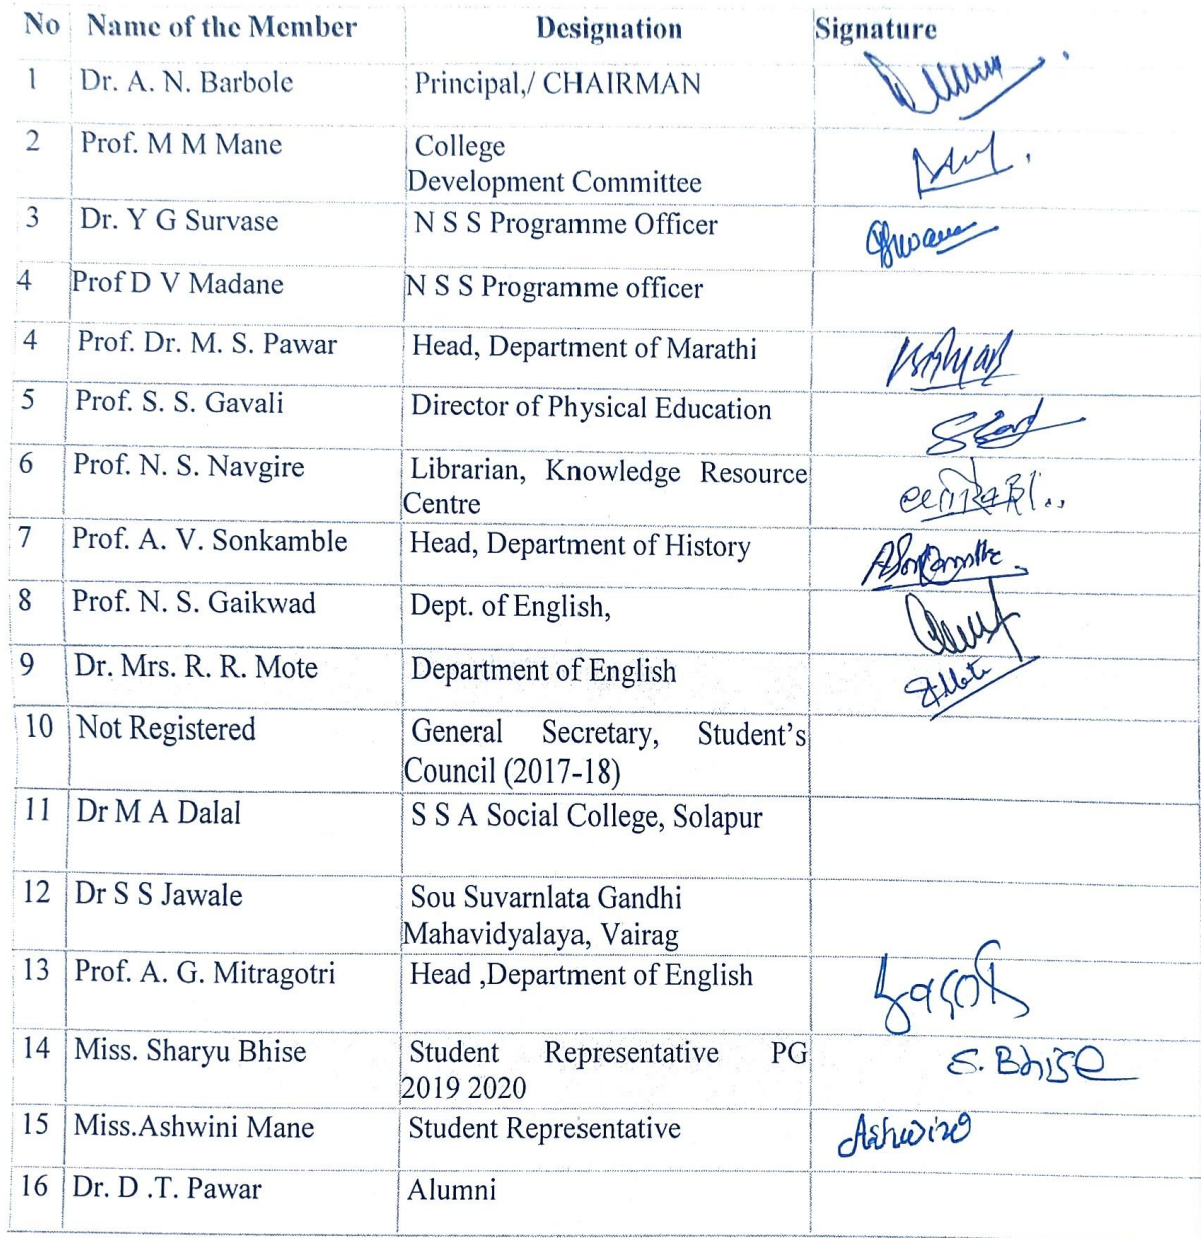 No Name of the Member Designation Signature
1 Dr. A. N. Barbole Principal,/ CHAIRMAN
2 Prof. M M Mane College
Development Committee
3 Dr. Y G Survase N S S Programme Officer
4 Prof D V Madane N S S Programme officer
4 Prof. Dr. M. S. Pawar Head, Department of Marathi
5 Prof. S. S. Gavali Director of Physical Education
6 Prof. N. S. Navgire Librarian, Knowledge Resource
Centre
7 Prof. A. V. Sonkamble Head, Department of History
8 Prof. N. S. Gaikwad Dept. of English,
9 Dr. Mrs. R. R. Mote Department of English
10 Not Registered General Secretary, Student's
Council (2017-18)
11 Dr M A Dalal S S A Social College, Solapur
12 Dr S S Jawale Sou Suvarnlata Gandhi
Mahavidyalaya, Vairag
13 Prof. A. G. Mitragotri Head ,Department of English
14 Miss. Sharyu Bhise Student Representative PG S. Bhise
2019 2020
15 Miss.Ashwini Mane Student Representative Ashwini
16 Dr. D .T. Pawar Alumni